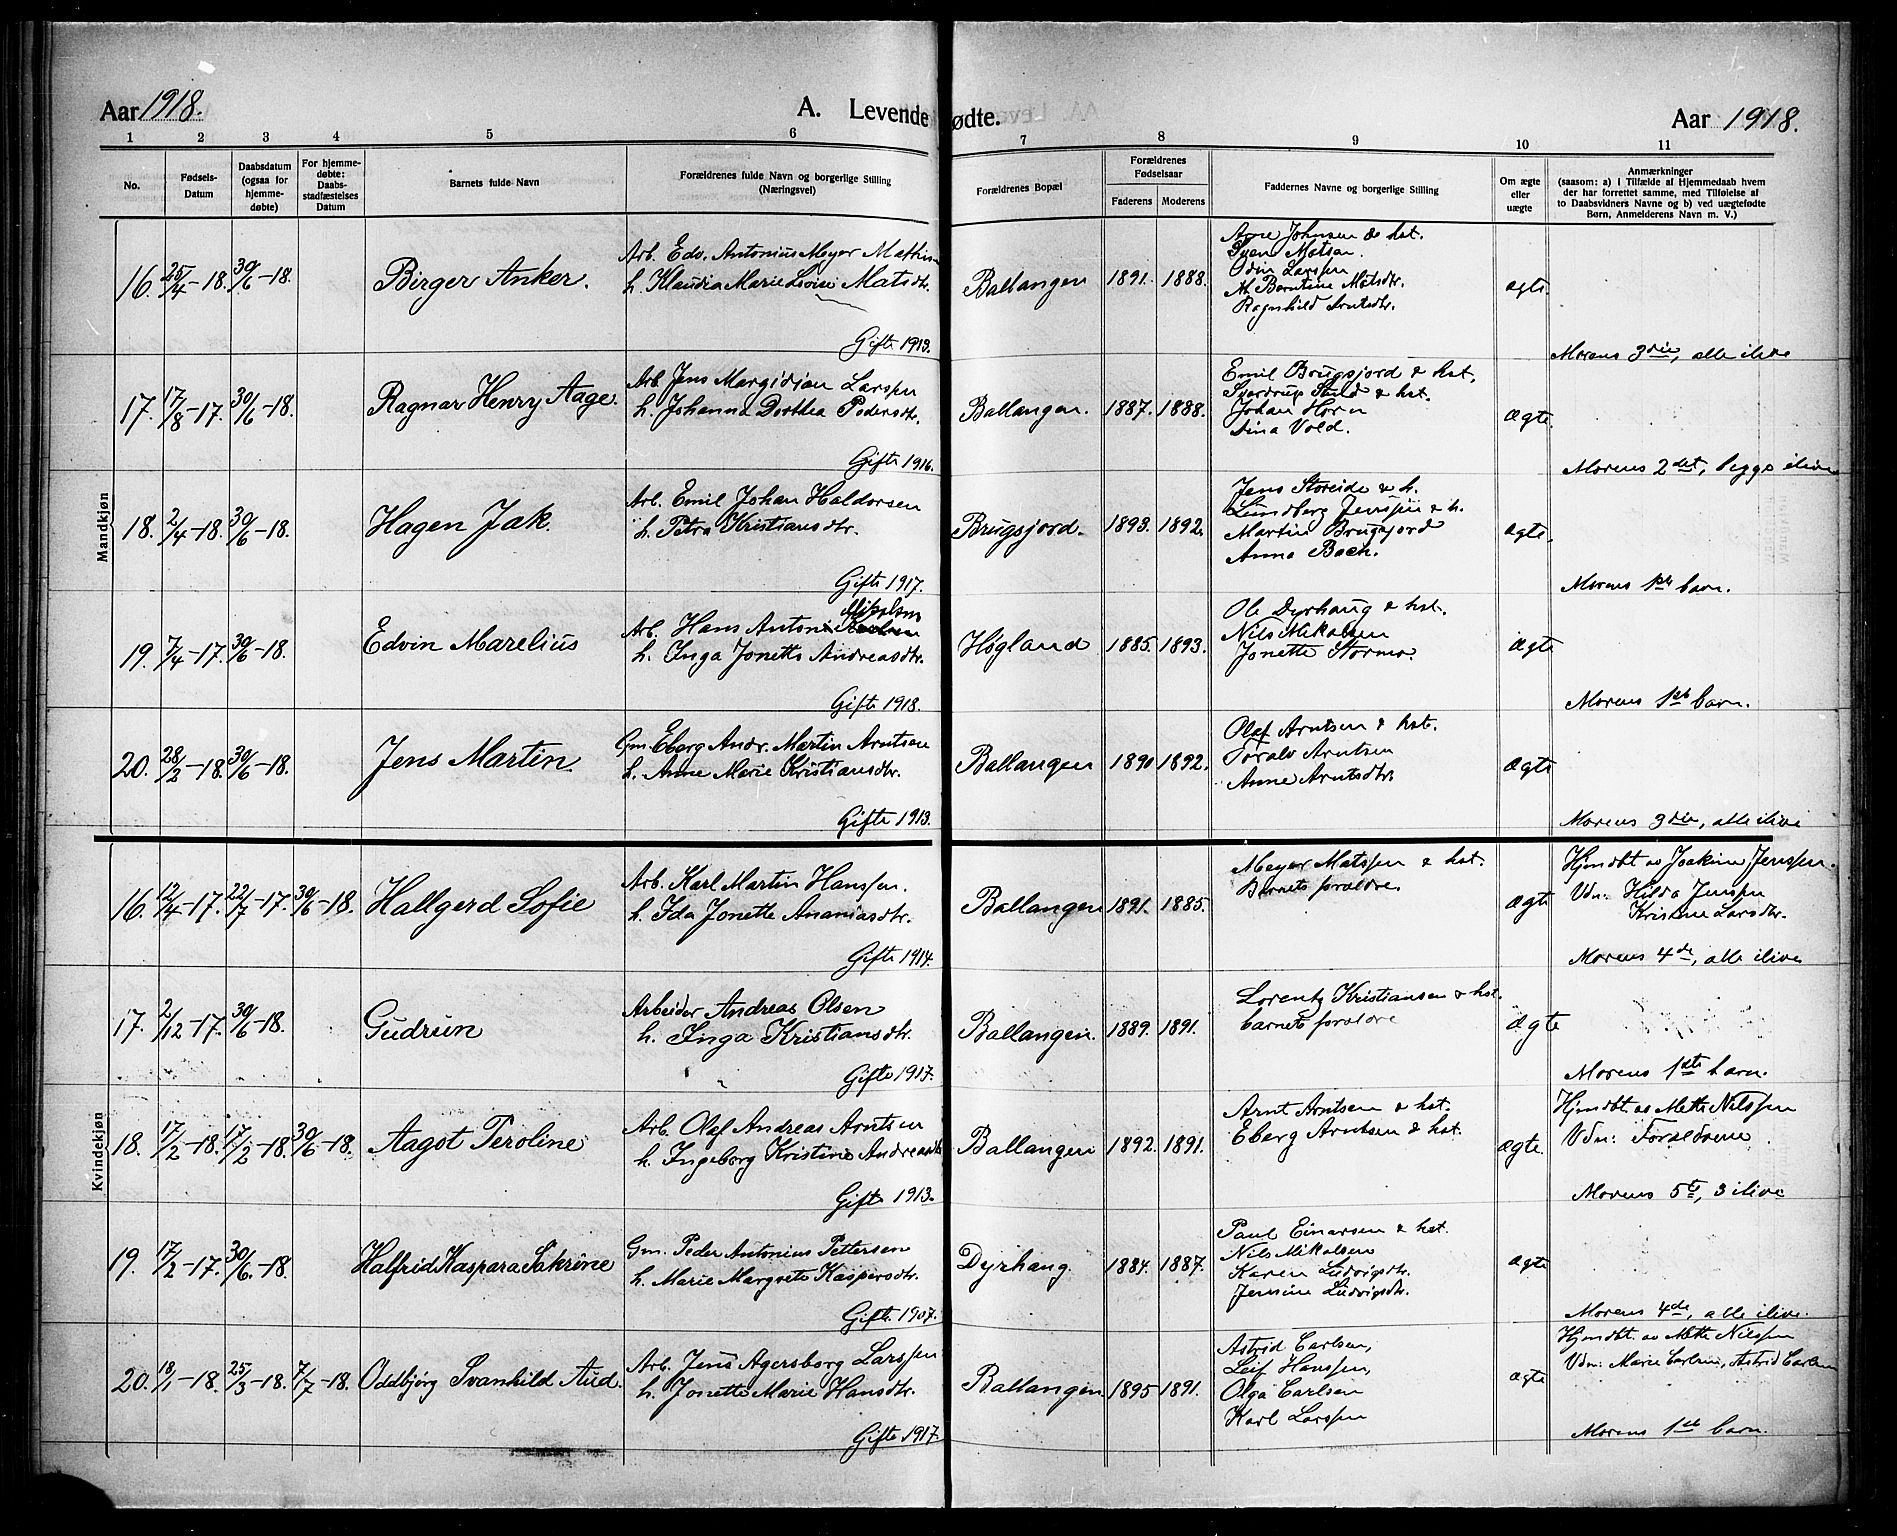 Aar 1918.
A. Levende fødte.
Aar 1918.
1 2 3 4 5 6 7 8 9 10 11
No.
Fødsels-
Datum
Daabsdatum
(ogsaa for
hjemme-
døbte)
For hjemme-
døbte:
Daabs-
stadfæstelses
Datum
Barnets fulde Navn
Forældrenes fulde Navn og borgerlige Stilling
(Næringsvei)
Forældrenes Bopæl
Forældrenes
Fødselsaar
Faderens Moderens
Faddernes Navne og borgerlige Stilling
Om ægte
eller
uægte
Anmærkninger
(saasom: a) i Tilfælde af Hjemmedaab hvem
der har forrettet samme, med Tilføielse af
to Daabsvidners Navne og b) ved uægtefødte
Børn, Anmelderens Navn m. V.)
Mandkjøn
16. 25/4-18. 30/6-18.
Birger Anker.
Arb. Edv. Antonius Meyer
h. Klaudia Marie Lovise Matsdtr.
Gifte 1913.
Ballangen 1891. 1888.
Arne Johnsen & hst.
Sven Matsen.
Odin Larssen
Berntine Matsdtr.
Ragnhild Arntsdtr.
ægte.
Morens 3die, alle ilive
17. 17/8-17. 30/6-18.
Ragnar Henry Aage.
Arb. Jens Margidian Larssen
h. Johanna Dorthea Pedersdtr.
Gifte 1916.
Ballangen. 1887. 1888.
Emil Brugsjord & hst.
Sverdrup & hst.
Johan Horn
Dina Vold.
ægte.
Morens 2det, begge ilive
18. 2/4-18. 30/6-18.
Hagen Jak.
Arb. Emil Johan Haldorsen
h. Petra Kristiansdtr.
Gifte 1917.
Brugsjord. 1893. 1892.
Jens Storeide & h.
Lundberg Jenssen & h.
Martin Brugsjord
Anna Bach.
ægte.
Morens 1ste barn.
19. 7/4-17. 30/6-18.
Edvin Marelius
Mikalsen
Arb. Hans Anton
h. Inga Jonette Andreasdtr.
Gifte 1918.
Høgland 1885. 1893.
Ole Dyrhaug & hst.
Nils Mikalsen
Jonette Stormo.
ægte
Morens 1ste barn.
20. 28/2-18. 30/6-18.
Jens Martin
Gm. Eberg Andr. Martin Arntsen
h. Anne Marie Kristiansdtr.
Gifte 1913.
Ballangen 1890 1892.
Olaf Arntsen & hst.
Toralv Arntsen
Anne Arntsdtr
ægte
Morens 3die, alle ilive
Kvindekjøn
16. 12/4-17. 22/7-17. 30/6-18.
Hallgerd Sofie
Arb. Karl Martin Hanssen.
h. Ida Jonette Ananiasdtr.
Gifte 1914.
Ballangen 1891. 1885.
Meyer Matssen & hst.
Barnets forældre.
ægte
Hjmdbt av Joakim Jenssen.
Vdn: Hilda Jenssen
Kristine Larsdtr.
Morens 4de, alle ilive
17. 2/12-17. 30/6-18.
Gudrun
Arbeider Andreas Olsen
h. Inga Kristiansdtr.
Gifte 1917.
Ballangen. 1889. 1891.
Lorentz Kristiansen & hst.
barnets forældre
ægte
Morens 1ste barn.
18. 17/2-18. 17/2-18. 30/6-18.
Aagot Peroline
Arb. Olaf Andreas Arntsen
h. Ingeborg Kristine Andreasdtr
Gifte 1913.
Ballangen 1892. 1891.
Arnt Arntsen & hst.
Eberg Arntsen & hst.
ægte.
Hjmdbt. av Mette Nilssen
Vdn: Forældrene.
Morens 5te, 3 ilive
19. 17/2-17. 30/6-18.
Halfrid Kaspara Sakrine
Gm. Peder Antonius Pettersen
h. Marie Margrete Kaspersdtr.
Gifte 1907.
Dyrhaug. 1884. 1887.
Paul Einarsen & hst.
Nils Mikalsen
Karen Ludvigsdtr.
Jensine Ludvigsdtr.
ægte
Morens 4de, alle ilive.
20. 18/1-18. 25/3-18. 7/7-18.
Oddbjørg Svanhild Aud.
Arb. Jens Agersborg Larssen
h. Jonette Marie Hansdtr.
Gifte 1917.
Ballangen 1895 1891.
Astrid Carlsen,
Leif Hanssen,
Olga Carlsen
Karl Larssen
ægte
Hjmdbt. av Mette Nilssen
Vdn: Marie Carlsen, Astrid Carlsen
Morens 1ste barn.